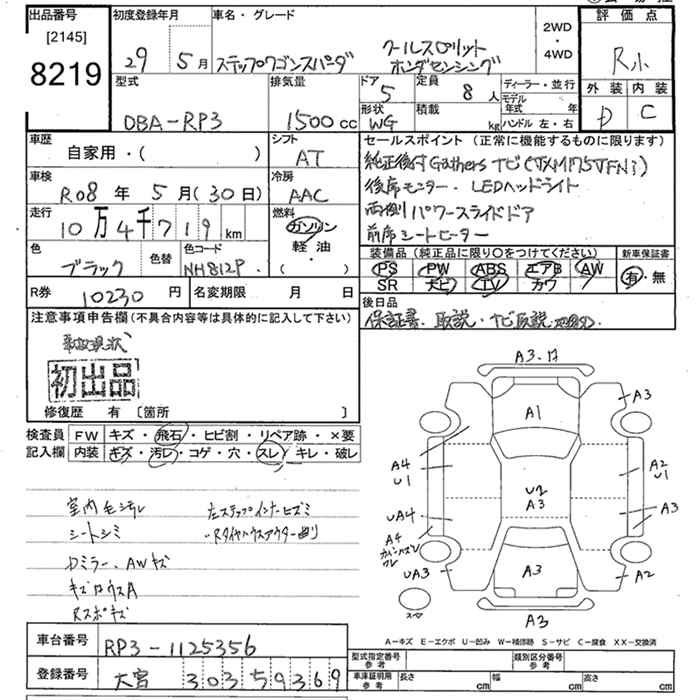 出品番号
[2145]
8219
初度登録年月
29 5月
車名・グレード
ステップワゴンスパーダ クールスピリット
ホンダセンシング
2WD
・
4WD
評価点
R小
外装 内装
D C
型式
DBA-RP3
排気量
1500cc
ドア
5
定員
8人
形状
WG
積載
kg
ディーラー・並行
モデル年式 年
ハンドル 左・右
車歴
自家用・( )
シフト
AT
車検
R08年5月(30日)
冷房
AAC
走行
10万4千719km
燃料
ガソリン
軽油
・( )
色
ブラック
色替
色コード
NH812P
R券
10230円
名変期限 月 日
セールスポイント (正常に機能するものに限ります)
純正後付Gathersナビ(VXM175VFNi)
後席モニター・LEDヘッドライト
両側パワースライドドア
前席シートヒーター
装備品(純正品に限り○をつけてください)
PS PW ABS エアB AW
SR ナビ TV カワ
新車保証書
有・無
後日品
保証書、取説・ナビ取説
注意事項申告欄(不具合内容等は具体的に記入して下さい)
事故現状
初出品
修復歴 有 [箇所 ]
検査員記入欄
FW キズ・飛石・ヒビ割・リペア跡・×要
内装 キズ・汚レ・コゲ・穴・スレ・キレ・破レ
室内毛汚レ
シートシミ
Dミラー、AWキズ
Rスポキズ
左ステップインナーヒズミ
RタイヤハウスアウターA曲り
A3
A1
A3
A4
U1
A2
U1
U2
A3
UA4
A3
A4
UA3
A3
A2
スペア
A3
A-キズ E-エクボ U-凹み W-補修跡 S-サビ C-腐食 XX-交換済
車台番号
RP3-1125356
登録番号
大宮 303 5 9369
型式指定番号
参考
類別区分番号
参考
車庫証明用
参考
長さ cm
幅 cm
高さ cm